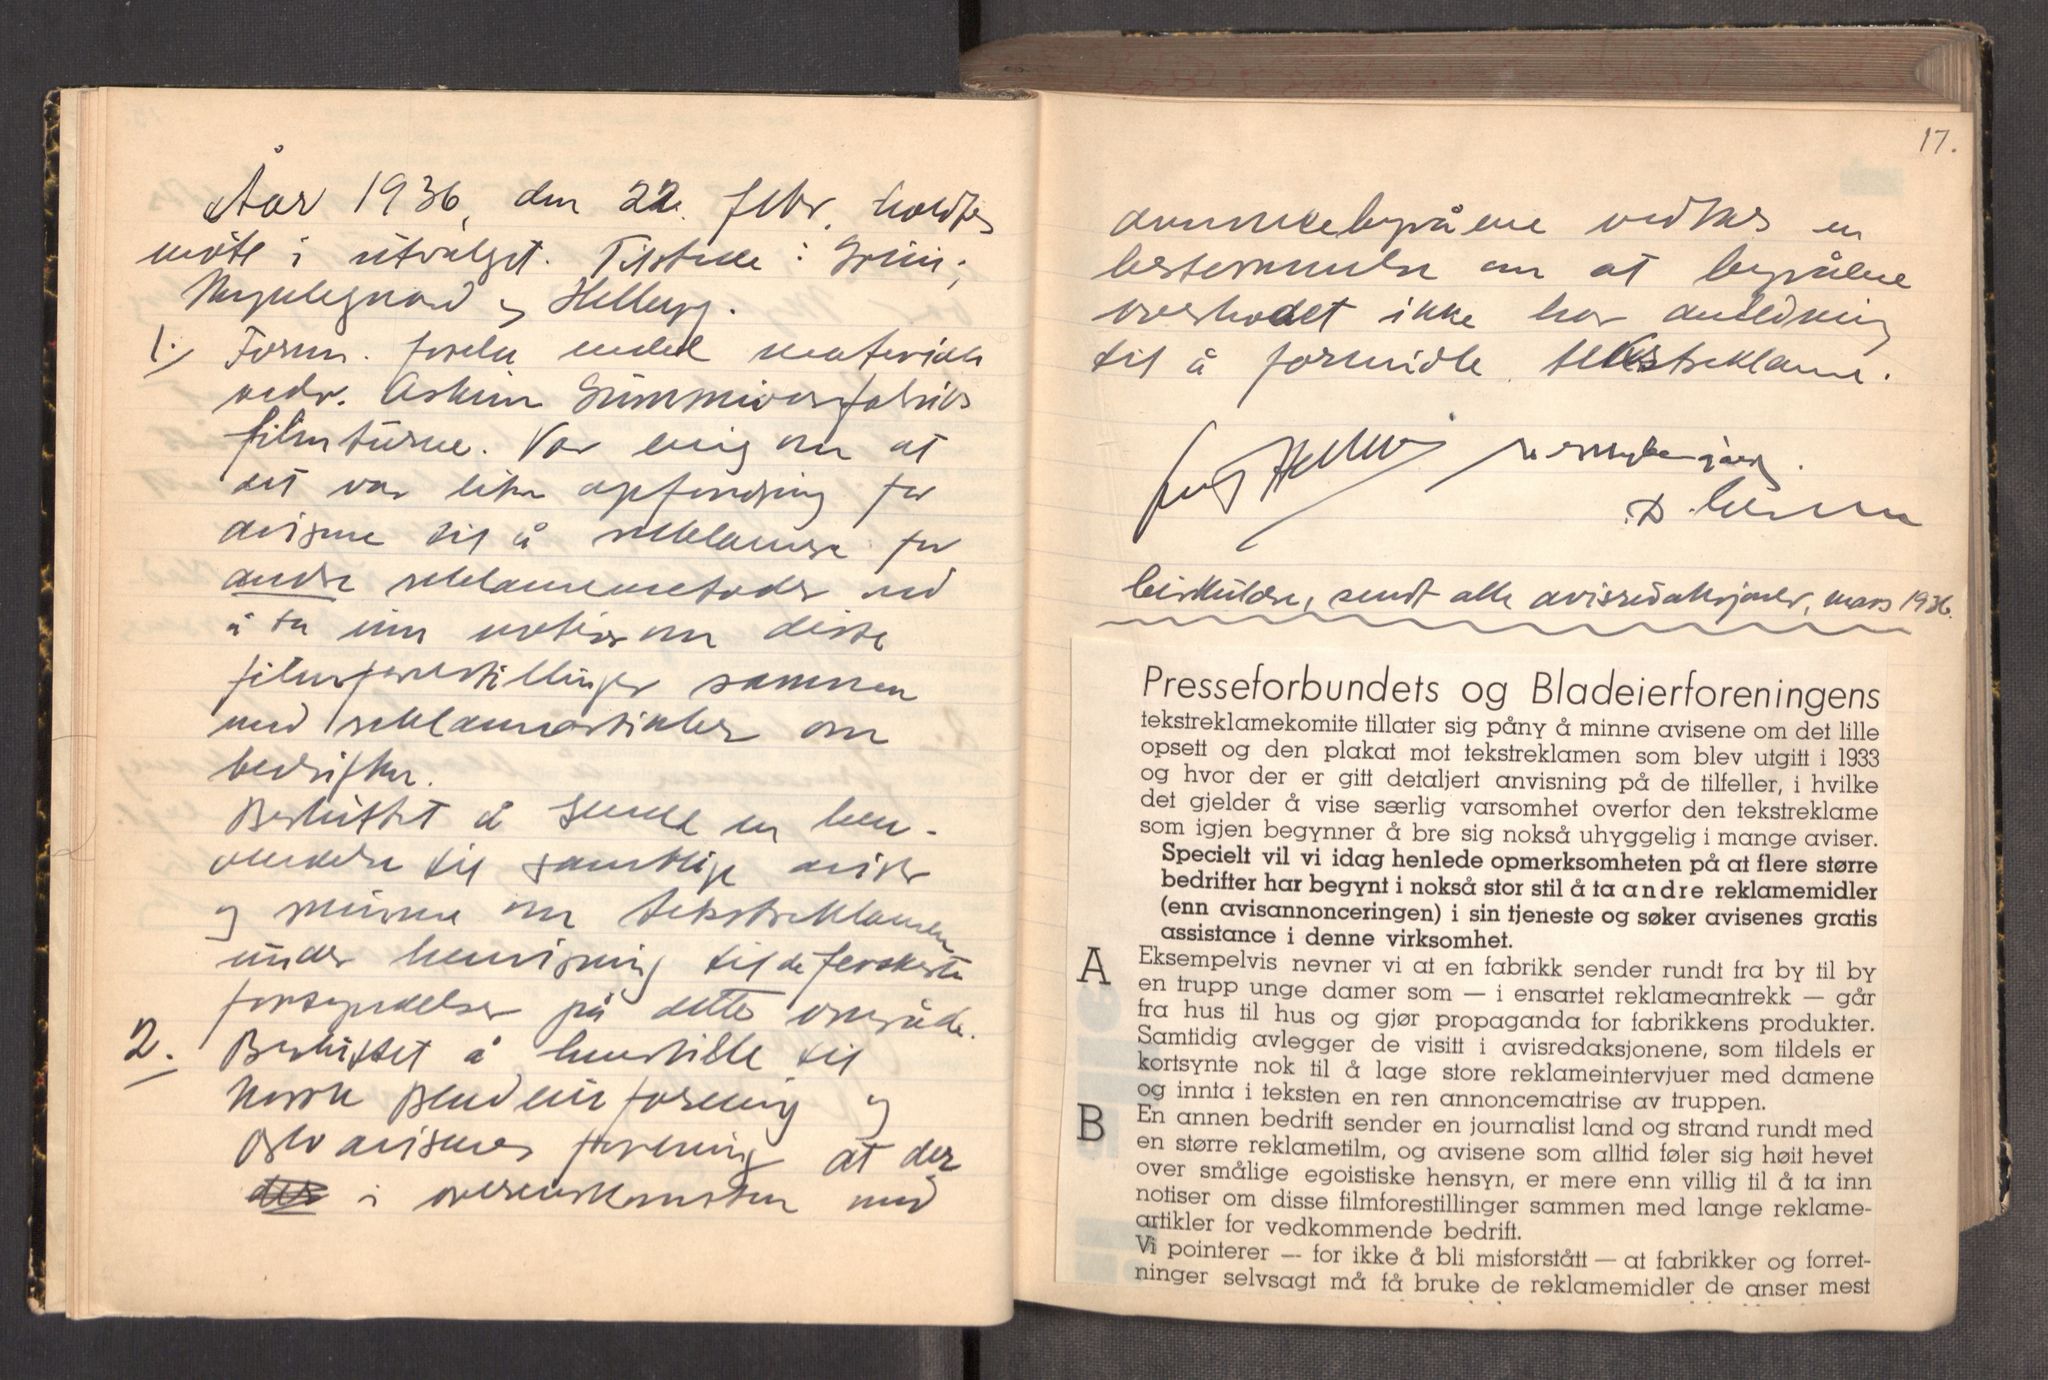 År 1936, den 22. febr. holdtes
møte i utvalget. Tilstede: Grün,
Myklegaard og Helberg.
1. Form. forela endel materiale
vedr. Askim Gummivarefabriks
filmturne. Var enig om at
det var liten opfordring for
avisene til å reklamere for
andre reklamemetoder ved
å ta inn notiser om disse
filmforestillinger sammen
med reklameartikler om
bedriften.
Besluttet å sende en hen-
vendelse til samtlige aviser
og minne om tekstreklamen
under henvisning til de ferskeste
forsyndelser på dette område.
2. Besluttet å henstille til
Norsk Bladeierforening og
Oslo avisenes forening at der
i overenskomsten med
17.
annonsebyråene vedtas en
bestemmelse om at byråene
overhodet ikke har anledning
til å formidle tekstreklame.
Cirkulære, sendt alle avisredaksjoner, mars 1936.
Presseforbundets og Bladeierforeningens
tekstreklamekomite tillater sig påny å minne avisene om det lille
opsett og den plakat mot tekstreklamen som blev utgitt i 1933
og hvor der er gitt detaljert anvisning på de tilfeller, i hvilke
det gjelder å vise særlig varsomhet overfor den tekstreklame
som igjen begynner å bre sig nokså uhyggelig i mange aviser.
Specielt vil vi idag henlede opmerksomheten på at flere større
bedrifter har begynt i nokså stor stil å ta andre reklamemidler
(enn avisannonceringen) i sin tjeneste og søker avisenes gratis
assistance i denne virksomhet.
A Eksempelvis nevner vi at en fabrikk sender rundt fra by til by
en trupp unge damer som — i ensartet reklameantrekk — går
fra hus til hus og gjør propaganda for fabrikkens produkter.
Samtidig avlegger de visitt i avisredaksjonene, som tildels er
kortsynte nok til å lage store reklameintervjuer med damene
og innta i teksten en ren annoncematrise av truppen.
B En annen bedrift sender en journalist land og strand rundt med
en større reklamefilm, og avisene som alltid føler sig høit hevet
over smålige egoistiske hensyn, er mere enn villig til å ta inn
notiser om disse filmforestillinger sammen med lange reklame-
artikler for vedkommende bedrift.
Vi pointerer — for ikke å bli misforstått — at fabrikker og forret-
ninger selvsagt må få bruke de reklamemidler de anser mest